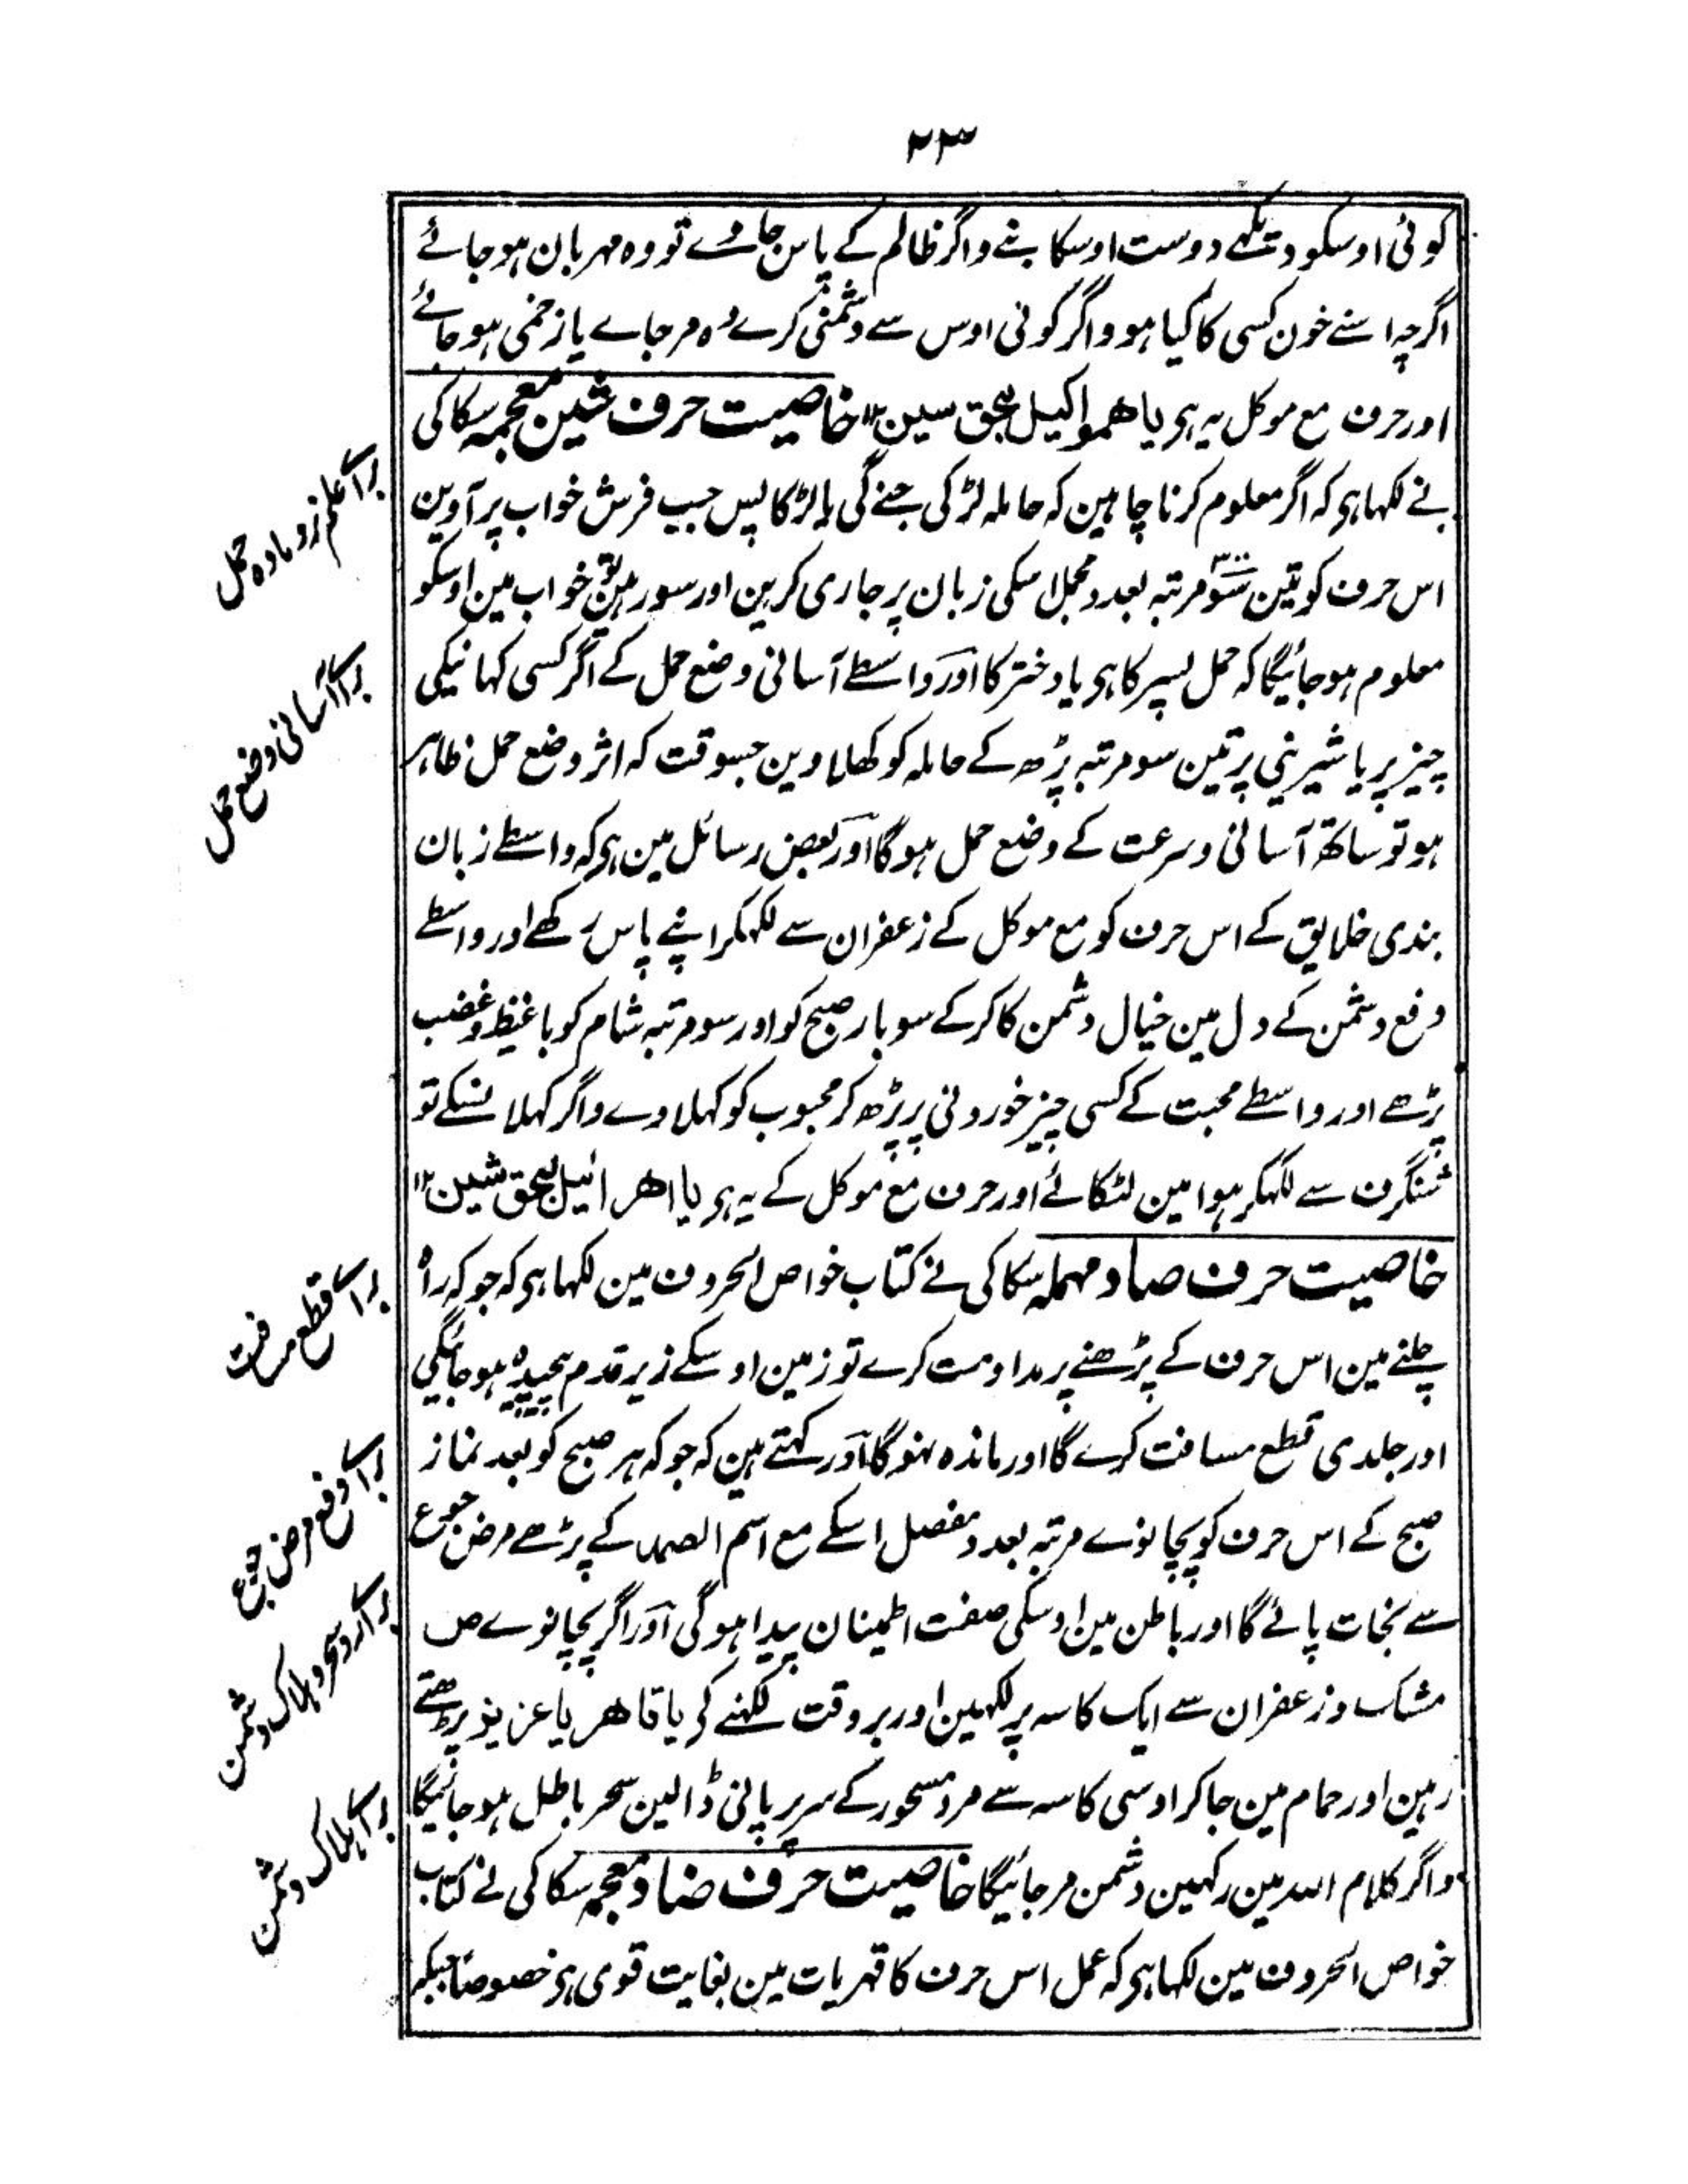 ۲۳
کوئی اوسکو دیکھے دوست اوسکا بنے واگر ظالم کے پاس جاوے تو وہ مہربان ہوجائے
اگرچہ اسنے خون کسی کا کیا ہو واگر کوئی اوس سے دشمنی کرے وہ مرجاے یا زخمی ہوجائے
اور حرف مع موکل یہ ہی یا ھمواکیل بحق سین ۱۲ خاصیت حرف شین معجمہ سکاکی
نے لکہا ہی کہ اگر معلوم کرنا چاہین کہ حاملہ لڑکی جنے گی یا لڑکا پس جب فرش خواب پر آوین
اس حرف کو تین سو مرتبہ بعدد مجمل اسکی زبان پر جاری کرین اور سو رہین تو خواب مین اوسکو
معلوم ہوجائیگا کہ حمل پسر کا ہی یا دختر کا اور واسطے آسانی وضع حمل کے اگر کسی کہانیکی
چیز پر یا شیرینی پر تین سو مرتبہ پڑھ کے حاملہ کو کھلاوین جسوقت کہ اثر وضع حمل ظاہر
ہو تو ساتھ آسانی وسرعت کے وضع حمل ہوگا اور بعض رسائل مین ہی کہ واسطے زبان
بندی خلایق کے اس حرف کو مع موکل کے زعفران سے لکہکر اپنے پاس رکھے اور واسطے
دفع دشمن کے دل مین خیال دشمن کا کرکے سو بار صبح کو اور سو مرتبہ شام کو باغیظ وغضب
پڑھے اور واسطے محبت کے کسی چیز خوردنی پر پڑھ کر محبوب کو کہلاوے واگر کہلا نسکے تو
شنگرف سے لکہکر ہوا مین لٹکائے اور حرف مع موکل کے یہ ہی یا اھرائیل بحق شین ۱۲
خاصیت حرف صاد مہملہ سکاکی نے کتاب خواص الحروف مین لکہا ہی کہ جو کہ راہ
چلنے مین اس حرف کے پڑھنے پر مداومت کرے تو زمین اوسکے زیر قدم پیچیدہ ہوجائیگی
اور جلدی قطع مسافت کرے گا اور ماندہ نہوگا اور کہتے ہین کہ جو کہ ہر صبح کو بعد نماز
صبح کے اس حرف کو پچانوے مرتبہ بعدد مفصل اسکے مع اسم الصمد کے پڑھے مرض جوع
سے نجات پائے گا اور باطن مین اوسکی صفت اطمینان پیدا ہوگی اور اگر پچانوے ص
مشک وزعفران سے ایک کاسہ پر لکہین اور بروقت لکہنے کی یا قاھر یا عزیز پڑھتے
رہین اور حمام مین جاکر اوسی کاسہ سے مرد مسحور کے سر پر پانی ڈالین سحر باطل ہوجائیگا
واگر کلام اللہ مین رکہین دشمن مرجائیگا خاصیت حرف ضاد معجمہ سکاکی نے کتاب
خواص الحروف مین لکہا ہی کہ عمل اس حرف کا قہریات مین بغایت قوی ہی خصوصا جبکہ
براے علم نر و مادہ حمل
براے آسانی وضع حمل
براے قطع مسافت
براے دفع مرض جوع
براے رد سحر و ہلاک دشمن
براے ہلاک دشمن